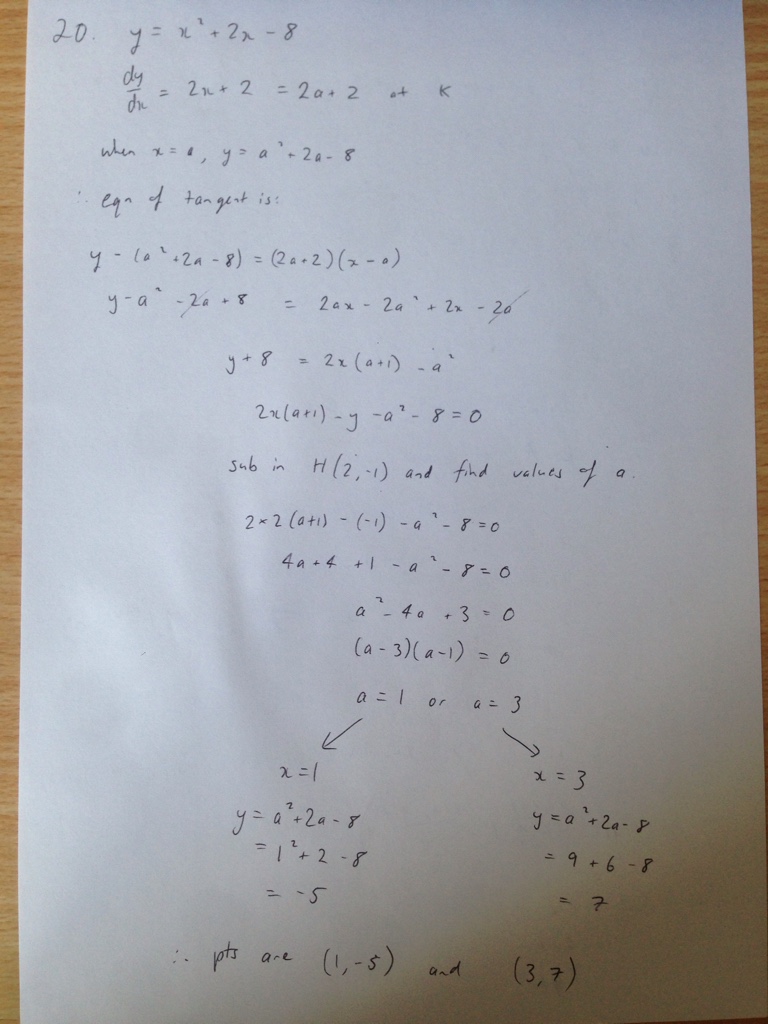 20. y = x² + 2x - 8
dy/dx = 2x + 2 = 2a + 2 at K
when x = a, y = a² + 2a - 8
∴ eqn of tangent is:
y - (a² + 2a - 8) = (2a + 2)(x - a)
y - a² - 2a + 8 = 2ax - 2a² + 2x - 2a
y + 8 = 2x(a+1) - a²
2x(a+1) - y - a² - 8 = 0
sub in H(2,-1) and find values of a.
2×2(a+1) - (-1) - a² - 8 = 0
4a + 4 + 1 - a² - 8 = 0
a² - 4a + 3 = 0
(a-3)(a-1) = 0
a = 1 or a = 3
x = 1 x = 3
y = a² + 2a - 8 y = a² + 2a - 8
= 1² + 2 - 8 = 9 + 6 - 8
= -5 = 7
∴ pts are (1,-5) and (3,7)